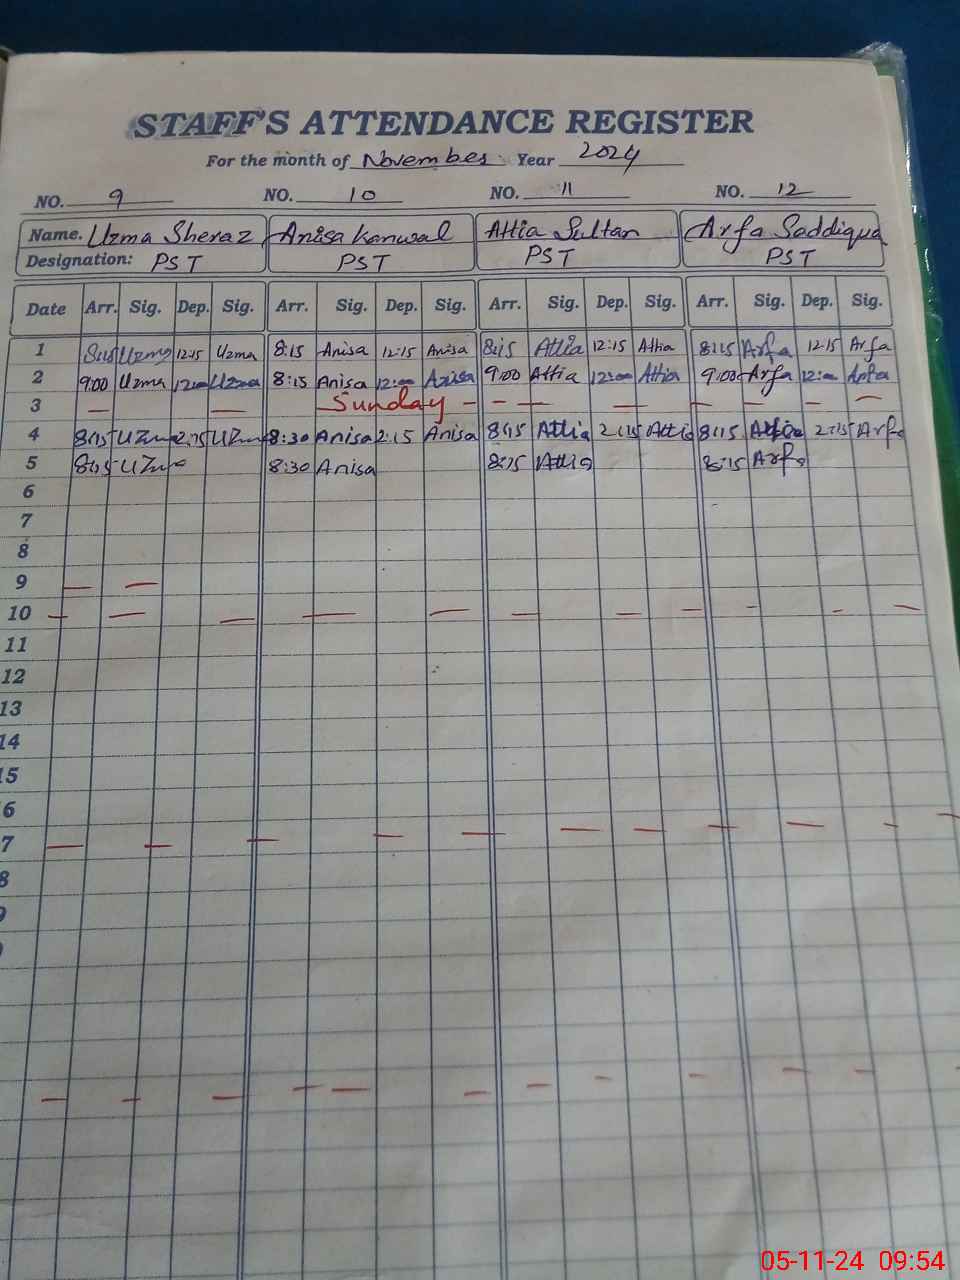 STAFF'S ATTENDANCE REGISTER
For the month of November Year 2024
NO. 9 NO. 10 NO. 11 NO. 12
Name. Uzma Sheraz Anisa Kanwal Attia Sultan Arfa Saddiqua
Designation: PST PST PST PST
Date Arr. Sig. Dep. Sig. Arr. Sig. Dep. Sig. Arr. Sig. Dep. Sig. Arr. Sig. Dep. Sig.
1 8:15 Uzma 12:15 Uzma 8:15 Anisa 12:15 Anisa 8:15 Attia 12:15 Attia 8:15 Arfa 12:15 Arfa
2 9:00 Uzma 12:00 Uzma 8:15 Anisa 12:00 Anisa 9:00 Attia 12:00 Attia 9:00 Arfa 12:00 Arfa
3 — — Sunday — — — — — — —
4 8:15 Uzma 2:15 Uzma 8:30 Anisa 2:15 Anisa 8:15 Attia 2:15 Attia 8:15 2:15 Arfa
5 8:15 Uzma 8:30 Anisa 8:15 Attia 8:15 Arfa
6
7
8
9 — —
10 — — — — — — — — — — —
11
12
13
14
15
6
7 — — — — — — — — — — —
8
9
05-11-24 09:54